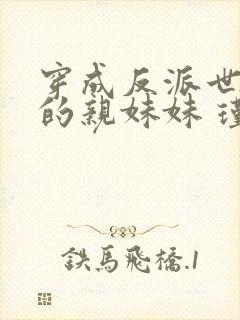 穿成反派世
的親妹妹
鉄馬飛橋.1